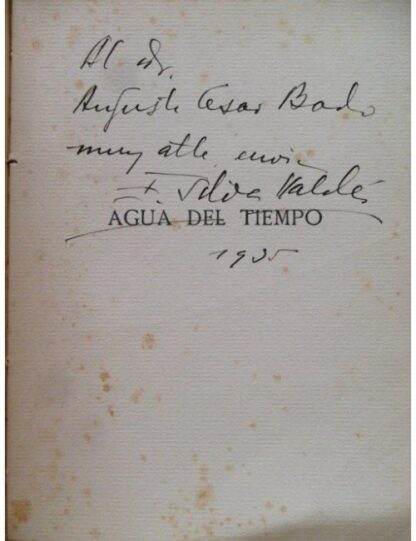 Al Dr.
Augusto Cesar Bado
muy atte. envia
F. Silva Valdés
AGUA DEL TIEMPO
1935